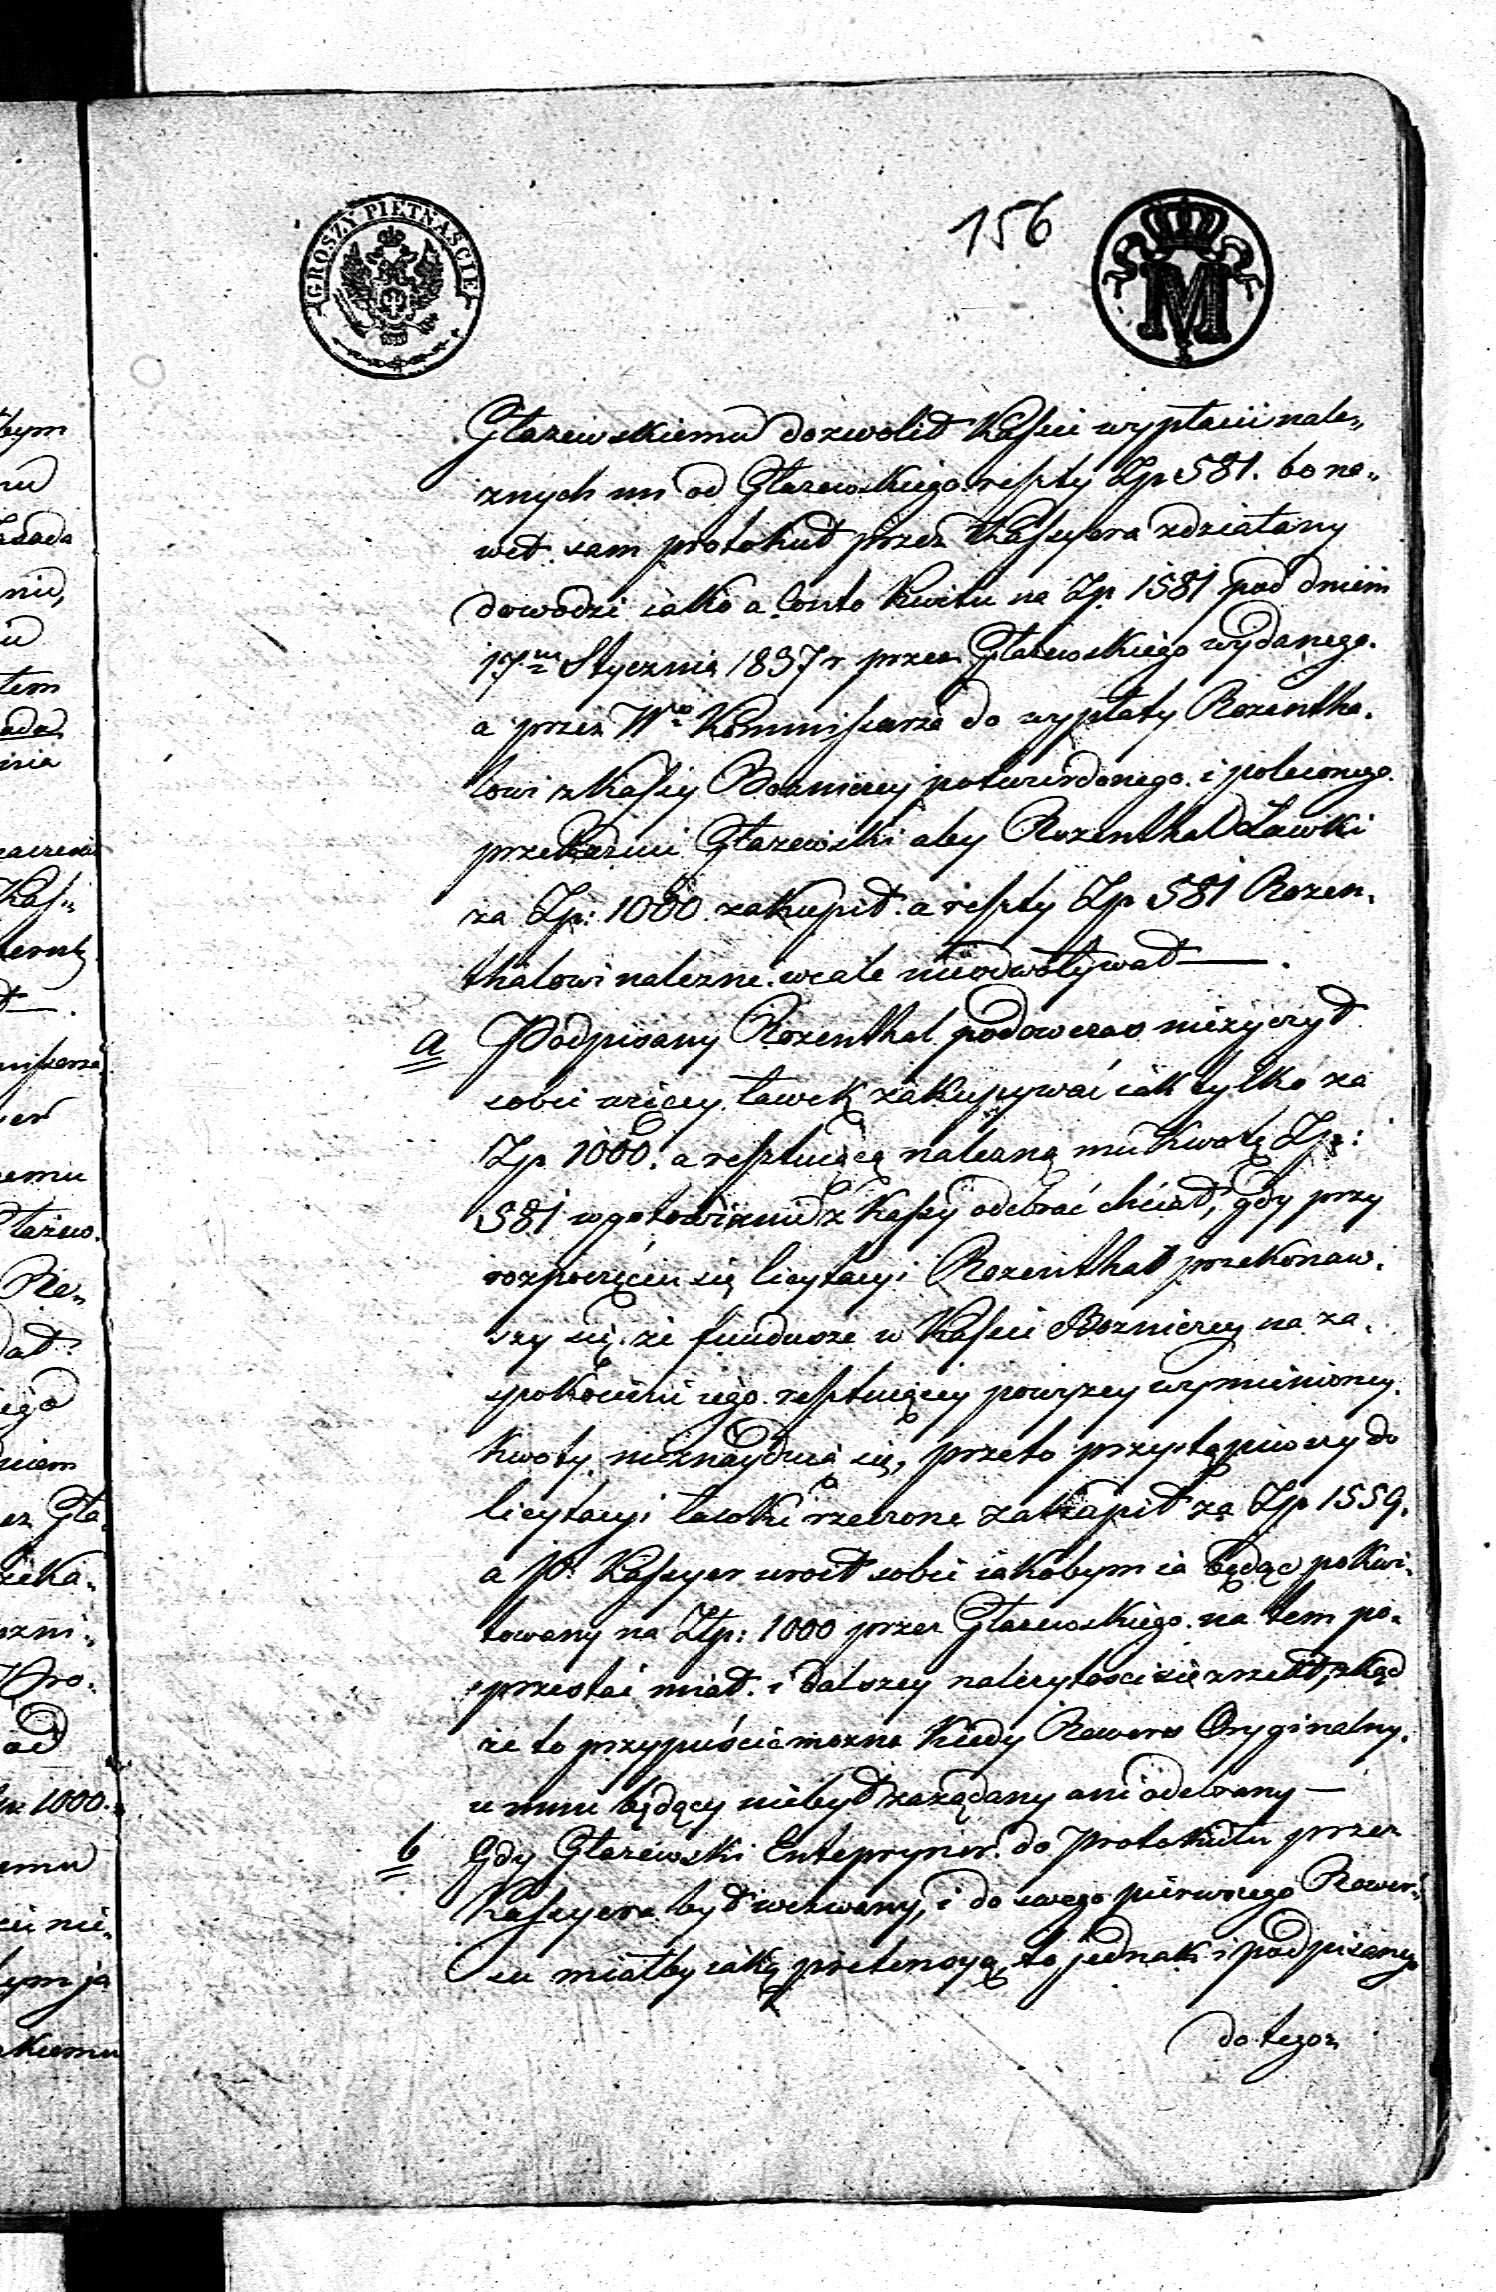 GROSZY PIETNAŚCIE
156
M
Głazewskiemu dozwolił Kassie wypłacić nale„
znych mi od Głazewskiego reszty Zp 581. bo na„
wet sam protokuł przez Kassyera zdziałany
dowodzi iako a Conto Kwitu na Zp 1581 pod dniem
17ᵐ Stycznia 1837 r przez Głazewskiego wydanego.
a przez Wᵒ Kommissarza do wypłaty Rozentha„
lowi z Kassy Boznicey potwierdzonego i poleconego
przekazuie Głazewski aby Rozenthal Ławki
za Zp: 1000 zakupił. a reszty Zp 581 Rozen„
thalowi nalezne. wcale nieodwoływał —.
a Podpisany Rozenthal podowczas nieżyczył
sobie więcey ławek zakupywać iak tylko za
Zp 1000. a resztuiącą nalezną mu Kwotę Zp:
581 w gotowiznie z Kassy odebrać chciał, gdy przy
rozpoczęciu się licytacyi Rozenthal przekonaw„
szy się że fundusze w Kassie Boznicey na za„
spokoienie iego resztuiącey powyzey wymienioney.
Kwoty nieznayduią się, przeto przystąpiwszy do
licytacyi ławki rzeczone zakupił za Zp 1559.
a P. Kassyer uroił sobie iakobym ia będąc pokwi„
towany na Złp: 1000 przez Głazewskiego na tem po„
przestać miał. i dalszey nalezytości się zrzekł, zkąd
że to przypuścić mozna Kiedy Rewers Oryginalny.
u mnie będący niebył zaządany ani odebrany —
b Gdy Głazewski Entepryner. do Protokułu przez
Kassyera był wezwany, i do swego pierwszego Rewer„
su miałby iaką pretensyą, to jednak i podpisany
do tegoż